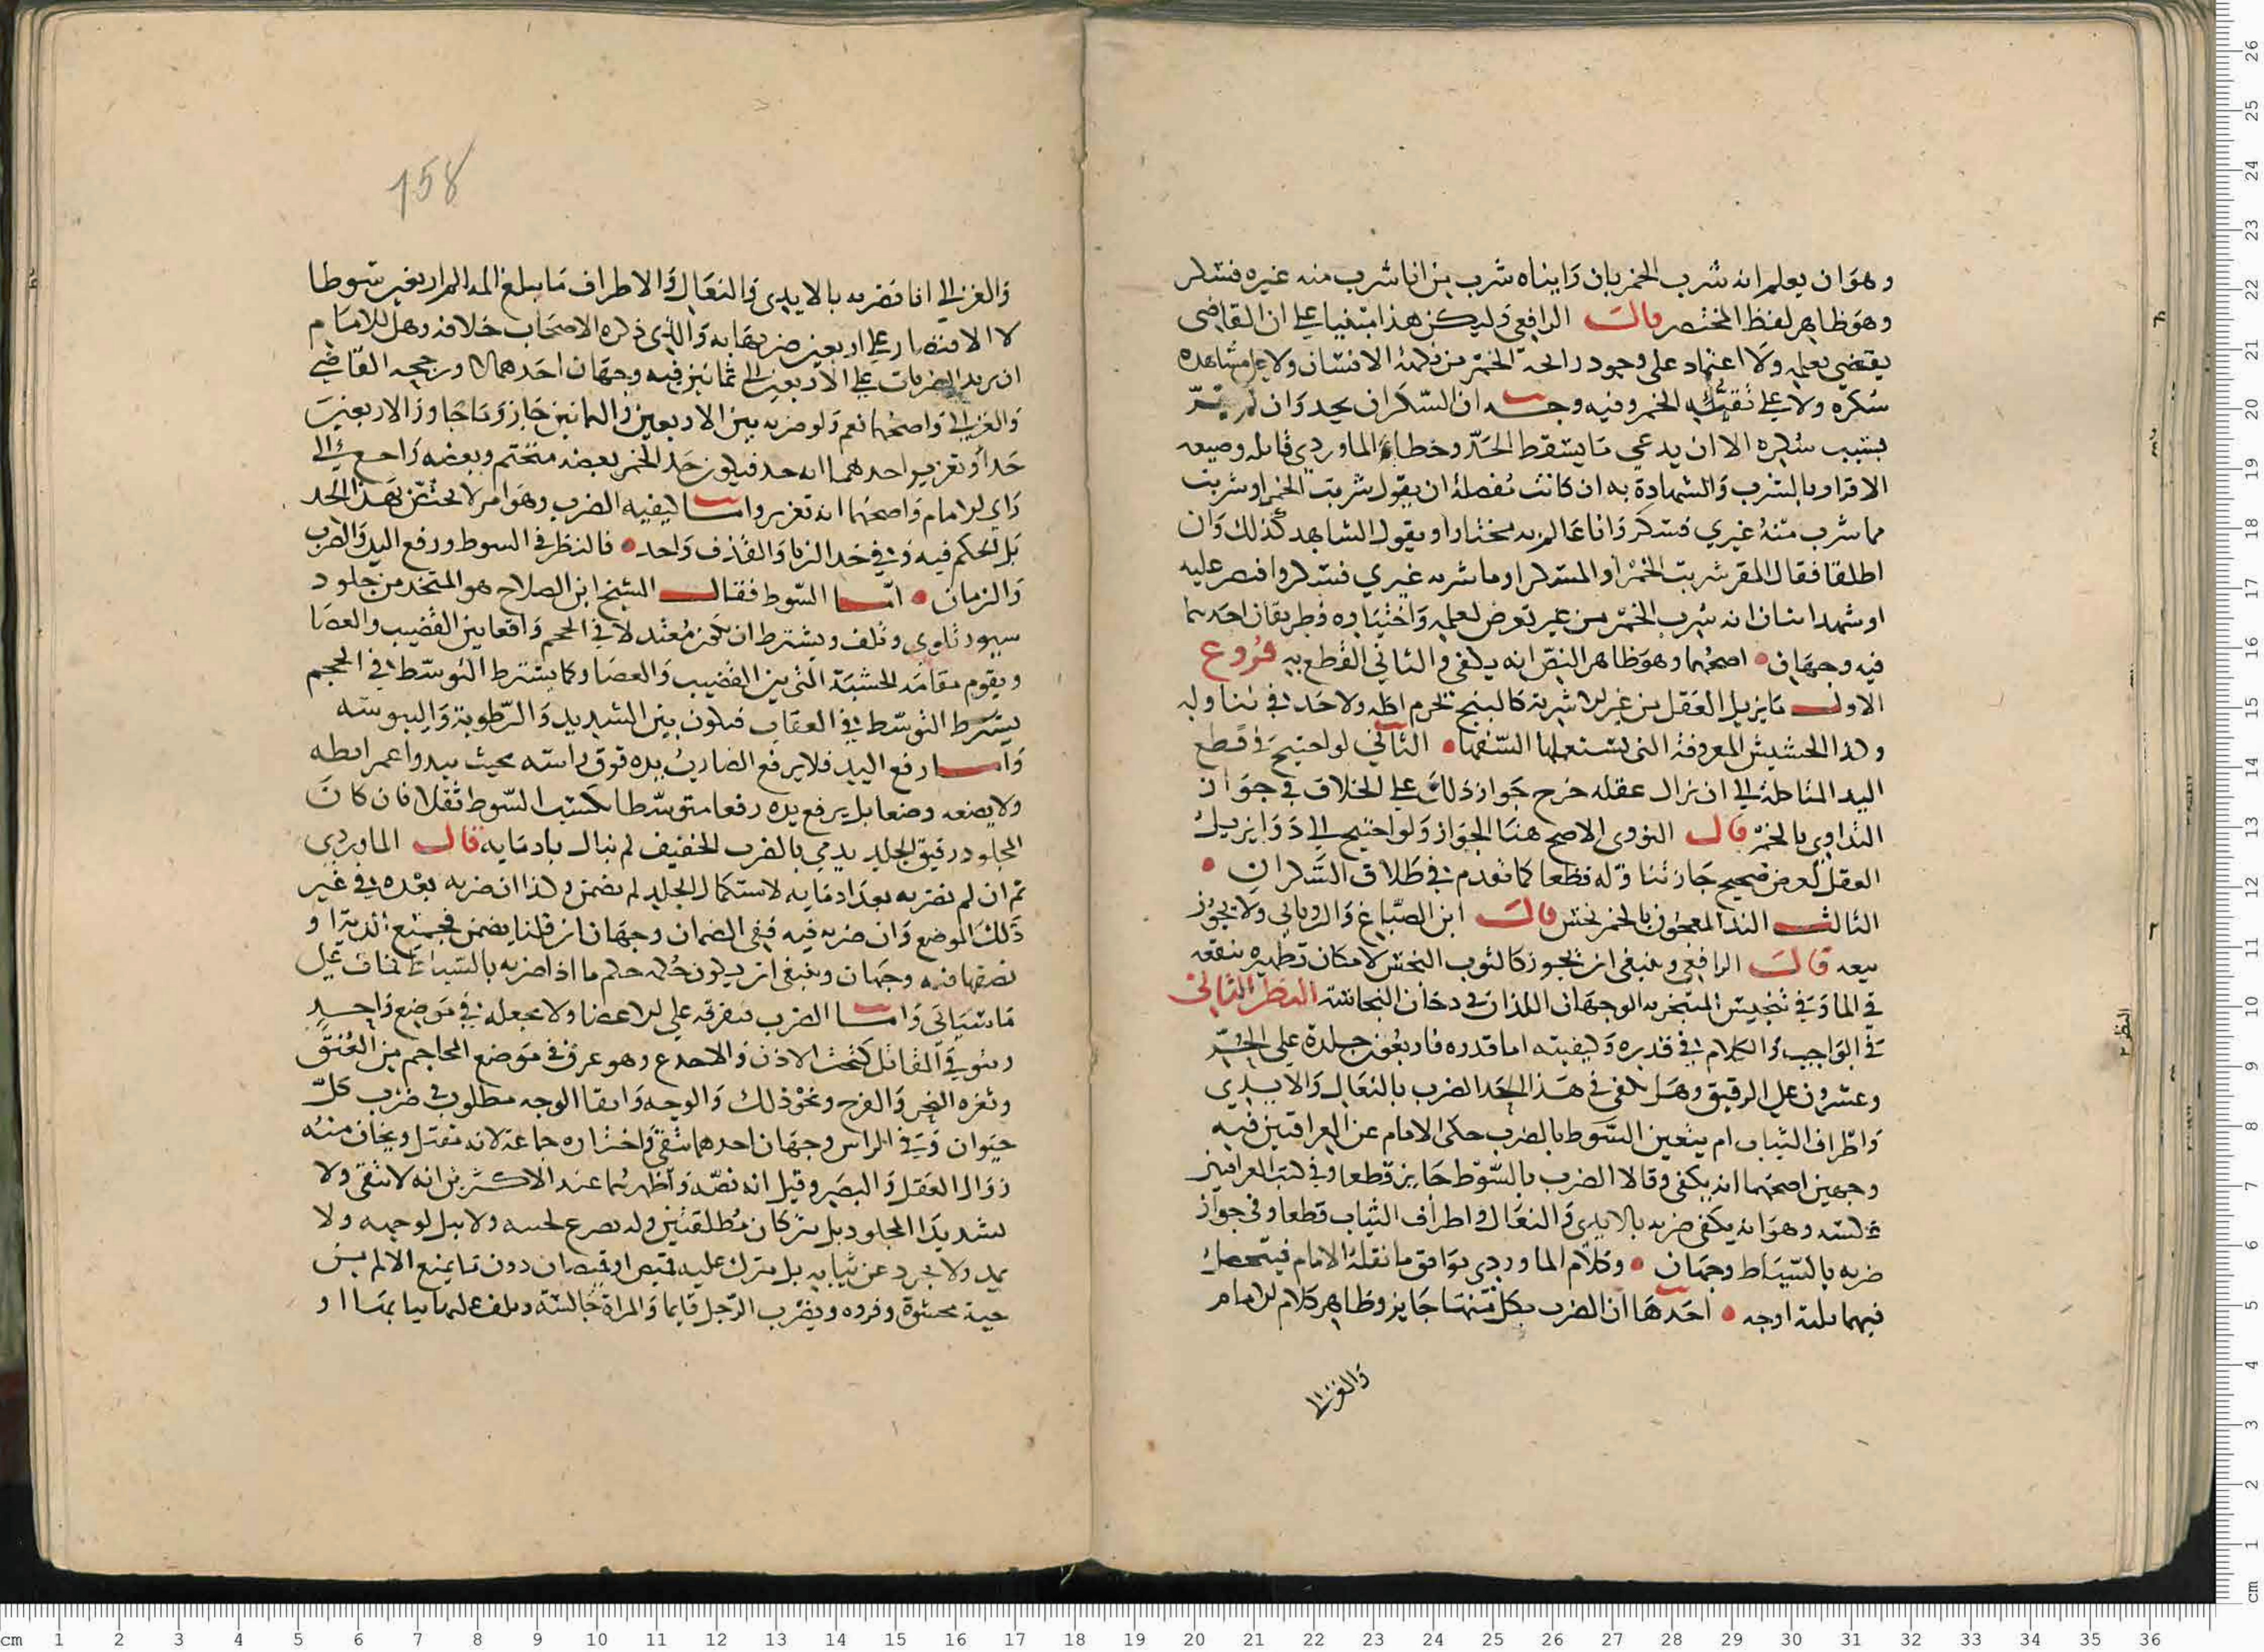 وهو ان يعلم انه شرب الخمر بان رايناه شرب من انا شرب منه غيره فسكر
وهو ظاهر لفظ المختصر قال الرافعي وليكن هذا مبنيا على ان القاضي
يقضي بعلمه ولا اعتماد على وجود رايحة الخمر من نكهة الانسان ولا على مشاهدة
سكره ولا على تقيئه الخمر وفيه وجه ان السكران يحد وان لم يقر
بسبب سكره الا ان يدعي ما يسقط الحد وخطا الماوردي قايله وصيغه
الاقرار بالشرب والشهادة به ان كانت مفصلة ان يقول شربت الخمر او شربت
مما شرب منه غيري فسكر وانا عالم به مختارا ويقول الشاهد كذلك وان
اطلقا فقال المقر شربت الخمر او المسكر او ما شربه غيري فسكر واقتصر عليه
او شهد اثنان انه شرب الخمر من غير تعرض لعلمه واختياره فطريقان احدهما
فيه وجهان اصحهما وهو ظاهر النص انه يكفي والثاني القطع به فروع
الاول ما يزيل العقل من غير الاشربة كالبنج يحرم اكله ولا حد في تناوله
وكذا الحشيش المعروفة التي يستعملها السفها الثاني لو احتيج في قطع
اليد المتاكلة الى ان يزال عقله خرج جواز ذلك على الخلاف في جواز
التداوي بالخمر قال النووي الاصح هنا الجواز ولو احتيج الى دوا يزيل
العقل لغرض صحيح جاز تناوله قطعا كما تقدم في طلاق السكران
الثالث الند المعجون بالخمر نجس قال ابن الصباغ والروياني ولا يجوز
بيعه قال الرافعي وينبغي ان يجوز كالثوب النجس لامكان تطهيره بنقعه
في الما وفي تنجيس المتبخر به الوجهان اللذان في دخان النجاسة النظر الثاني
في الواجب والكلام في قدره وكيفيته اما قدره فاربعون جلدة على الحر
وعشرون على الرقيق وهل يكفي في هذا الحد الضرب بالنعال والايدي
واطراف الثياب ام يتعين السوط بالضرب حكى الامام عن العراقيين فيه
وجهين اصحهما انه يكفي وقالا الضرب بالسوط جايز قطعا وفي كتب العراقيين
عكسه وهو انه يكفي ضربه بالايدي والنعال واطراف الثياب قطعا وفي جواز
ضربه بالسياط وجهان وكلام الماوردي يوافق ما نقله الامام فيتحصل
فيهما ثلثة اوجه احدها ان الضرب بكل منهما جايز وظاهر كلام الامام
والغزالي
158
والغزالي انا نضربه بالايدي والنعال والاطراف ما يبلغ المه الم اربعين سوطا
لا الاقتصار على اربعين ضربة بها والذي ذكره الاصحاب خلافه وهل للامام
ان يزيد الضربات على الاربعين الى ثمانين فيه وجهان احدهما لا ورجحه القاضي
والغزالي واصحهما نعم ولو ضربه بين الاربعين والثمانين جاز وما جاوز الاربعين
حد او تعزير احدهما انه حد فيكون حد الخمر بعضه متختم وبعضه راجع الى
راي الامام واصحهما انه تعزير واما كيفية الضرب وهو امر لا يختص بهذا الحد
بل الحكم فيه وفي حد الزنا والقذف واحد فالنظر في السوط ورفع اليد والضرب
والزمان اما السوط فقال الشيخ ابن الصلاح هو المتخذ من جلود
سيور تلوي وتلف ويشترط ان يكون معتدلا في الحجم واقعا بين القضيب والعصا
ويقوم مقامه الخشبة التي بين القضيب والعصا وكما يشترط التوسط في الحجم
يشترط التوسط في العقاب فيكون بين الشديد والرطوبة واليبوسة
واما رفع اليد فلا يرفع الضارب يده فوق راسه بحيث يبدوا عفر ابطه
ولا يضعه وضعا بل يرفع يده رفعا متوسطا ليكتسب السوط ثقلا فان كان
المجلود رقيق الجلد يدمي بالضرب الخفيف لم نبال بادمايه قال الماوردي
ثم ان لم نضربه بعد ادمايه لاستكمال الجلد لم يضمن وكذا ان ضربه بعده في غير
ذلك الموضع وان ضربه فيه ففي الضمان وجهان ان قلنا يضمن فجميع الدية او
نصفها فيه وجهان وينبغي ان يكون حكمه حكم ما اذا ضربه بالسياط فمات على
ما سياتي واما الضرب فيفرقه على الاعضا ولا يجعله في موضع واحد
ويتوقى المقاتل كتحت الاذن والاخدع وهو عرق في موضع المحاجم من العنق
وثغرة النحر والفرج ونحو ذلك والوجه واتقا الوجه مطلوب في ضرب كل
حيوان وفي الراس وجهان احدهما يتقى واختاره جماعة لانه مقتل ويخاف منه
زوال العقل والبصر وقيل انه نصه واظهرهما عند الاكثرين انه لا يتقى ولا
يشد يدا المجلود بل يتركان مطلقتين وله يصرع لجنبه ولا يبل لوجهه ولا
يمد ولا يجرد عن ثيابه بل يترك عليه قميص او قميصان دون ما يمنع الالم من
جبة محشوة وفروة ويضرب الرجل قايما والمراة جالسة وتلف عليها ثيابها او